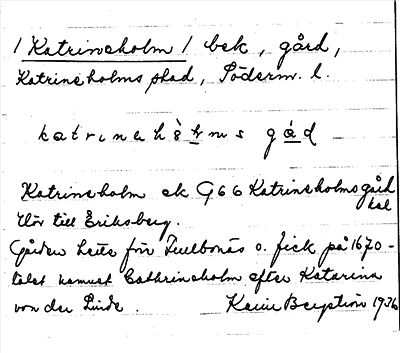 / Katrineholm / bek, gård,
Katrineholms stad, Söderm. l.
katrineh$\grave{o}$lms gård
Katrineholm ek G66 Katrineholms gård kbl
Hör till Eriksberg.
Gården hette förr Jeulbonäs o. fick på 1670-
talet namnet Cathrineholm efter Katarina
von der Linde. Karin Bergström 1936